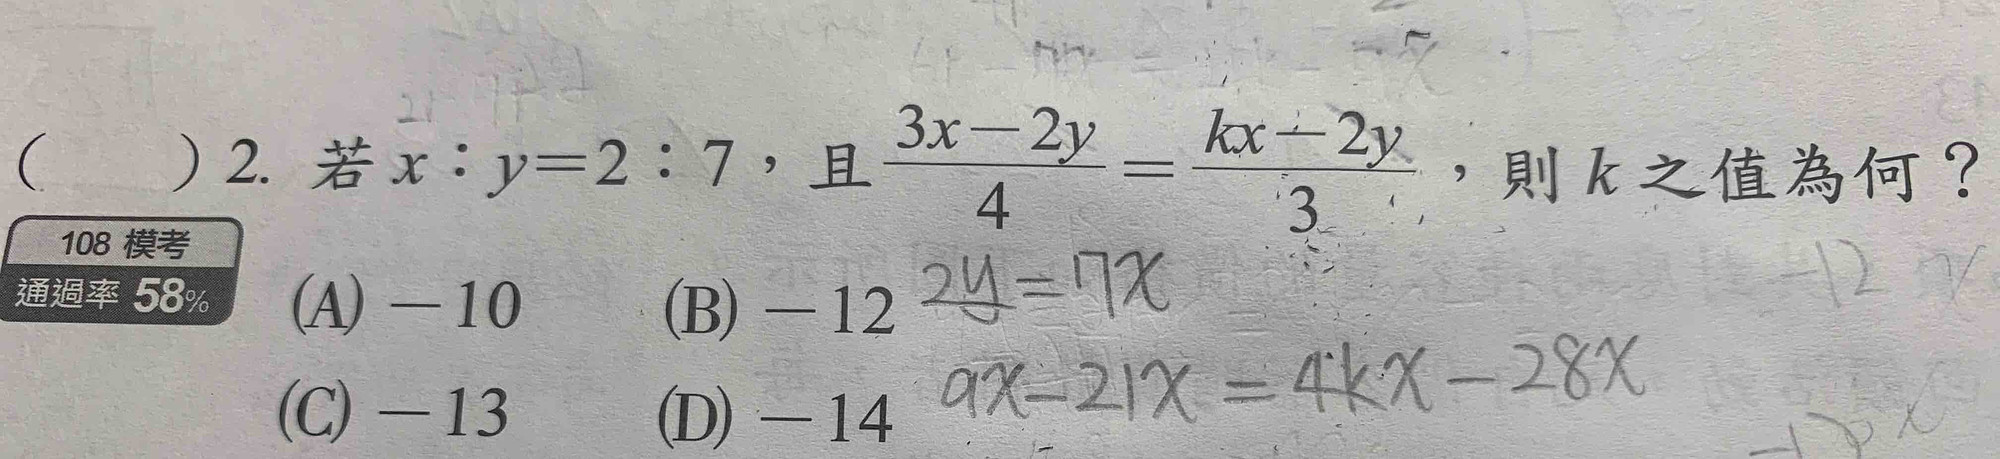 ( ) 2. 若 x：y＝2：7，且 (3x－2y)/4＝(kx－2y)/3，則 k 之值為何？
108 模考
通過率 58%
(A)－10 (B)－12
2y=7x
(C)－13 (D)－14
9x-21x=4kx-28x